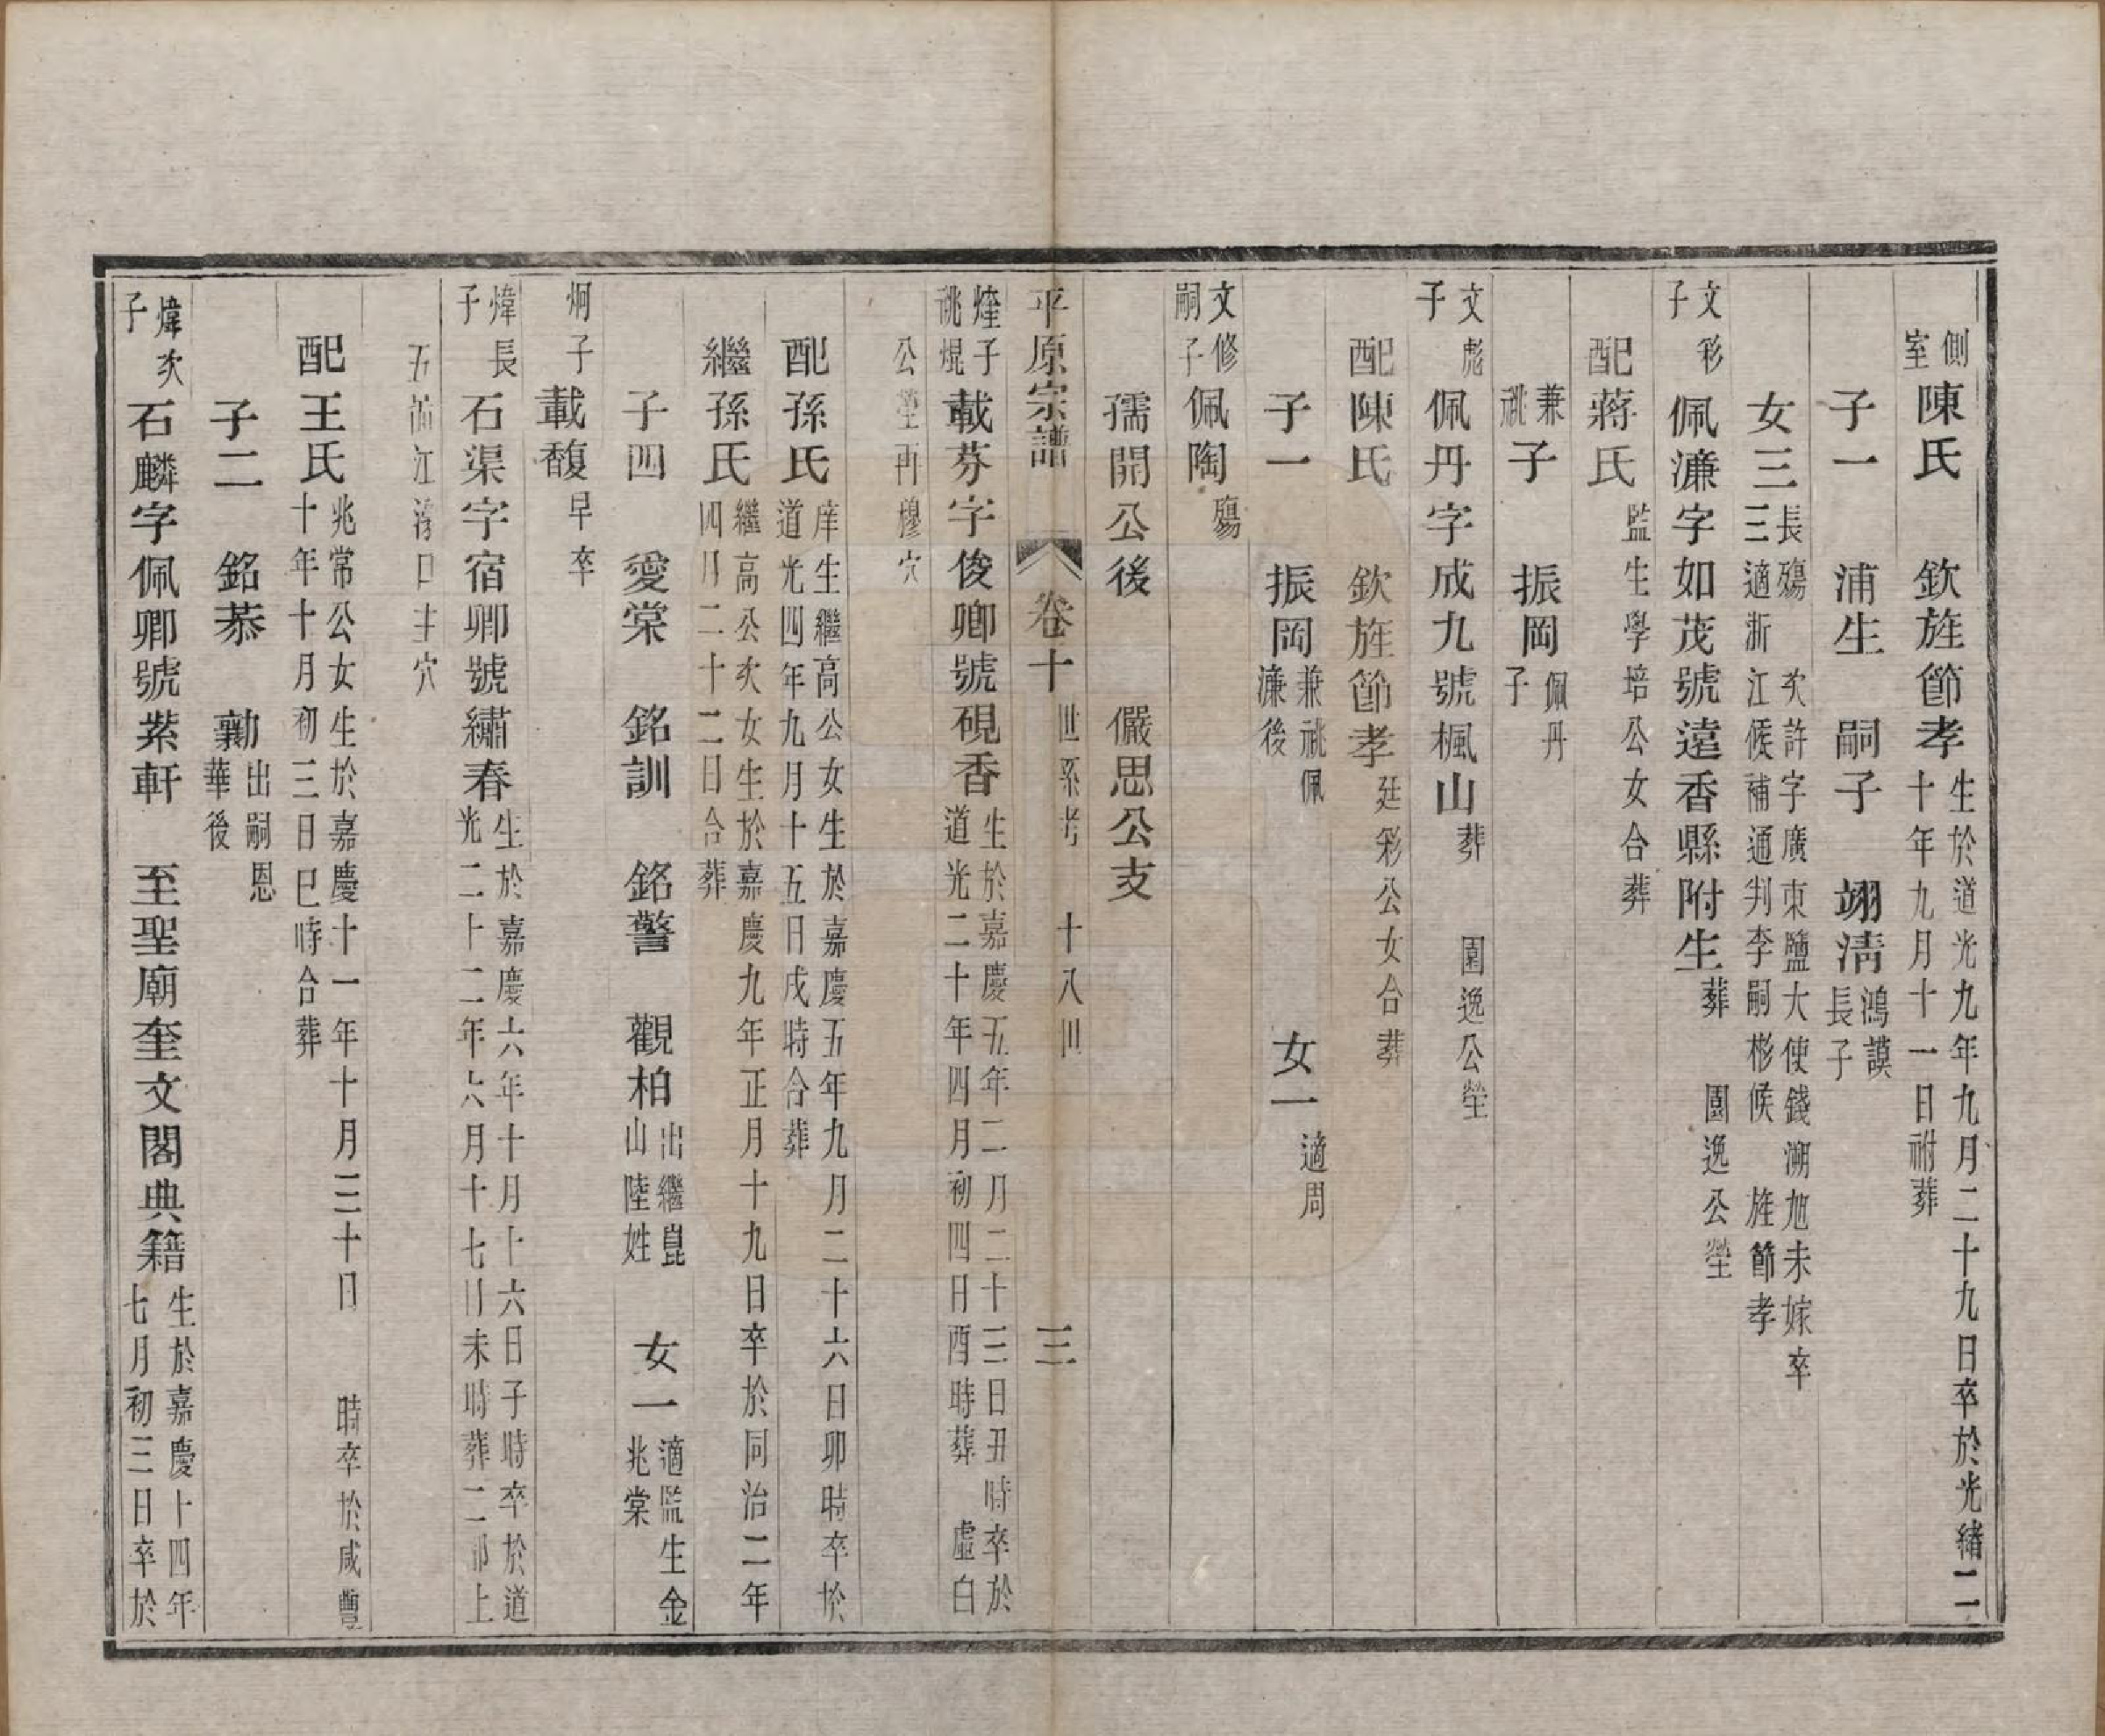 側室陳氏 欽旌節孝生於道光九年九月二十九日卒於光緒二十年九月十一日祔葬
子一 浦生 嗣子 翊淸鴻謨長子
女三長殤 次許字廣東鹽大使錢溯旭未嫁卒三適浙江候補通判李嗣彬候旌節孝
文彩子佩濂字如茂號遠香縣附生葬 園逸公塋
配蔣氏監生學培公女合葬
兼祧子 振岡佩丹子
文彪子佩丹字成九號楓山葬 園逸公塋
配陳氏 欽旌節孝廷彩公女合葬
子一 振岡兼祧佩濂後 女一適周
文修嗣子佩陶殤
孺開公後 儼思公支
平原宗譜 卷十 世系考 十八世 三
煃子祧焜載芬字俊卿號硯香生於嘉慶五年二月二十三日丑時卒於道光二十年四月初四日酉時葬 虛白
公塋再穆穴
配孫氏庠生繼高公女生於嘉慶五年九月二十六日卯時卒於道光四年九月十五日戌時合葬
繼孫氏繼高公次女生於嘉慶九年正月十九日卒於同治二年四月二十二日合葬
子四 愛棠 銘訓 銘警 觀柏出繼崑山陸姓 女一適監生金兆棠
炯子載馥早卒
煒長子石渠字宿卿號繡春生於嘉慶六年十月十六日子時卒於道光二十二年六月十七日未時葬二都上
五啚江漕口主穴
配王氏兆常公女生於嘉慶十一年十月三十日 時卒於咸豐十年十月初三日巳時合葬
子二 銘恭 勷出嗣恩華後
煒次子石麟字佩卿號紫軒 至聖廟奎文閣典籍生於嘉慶十四年七月初三日卒於